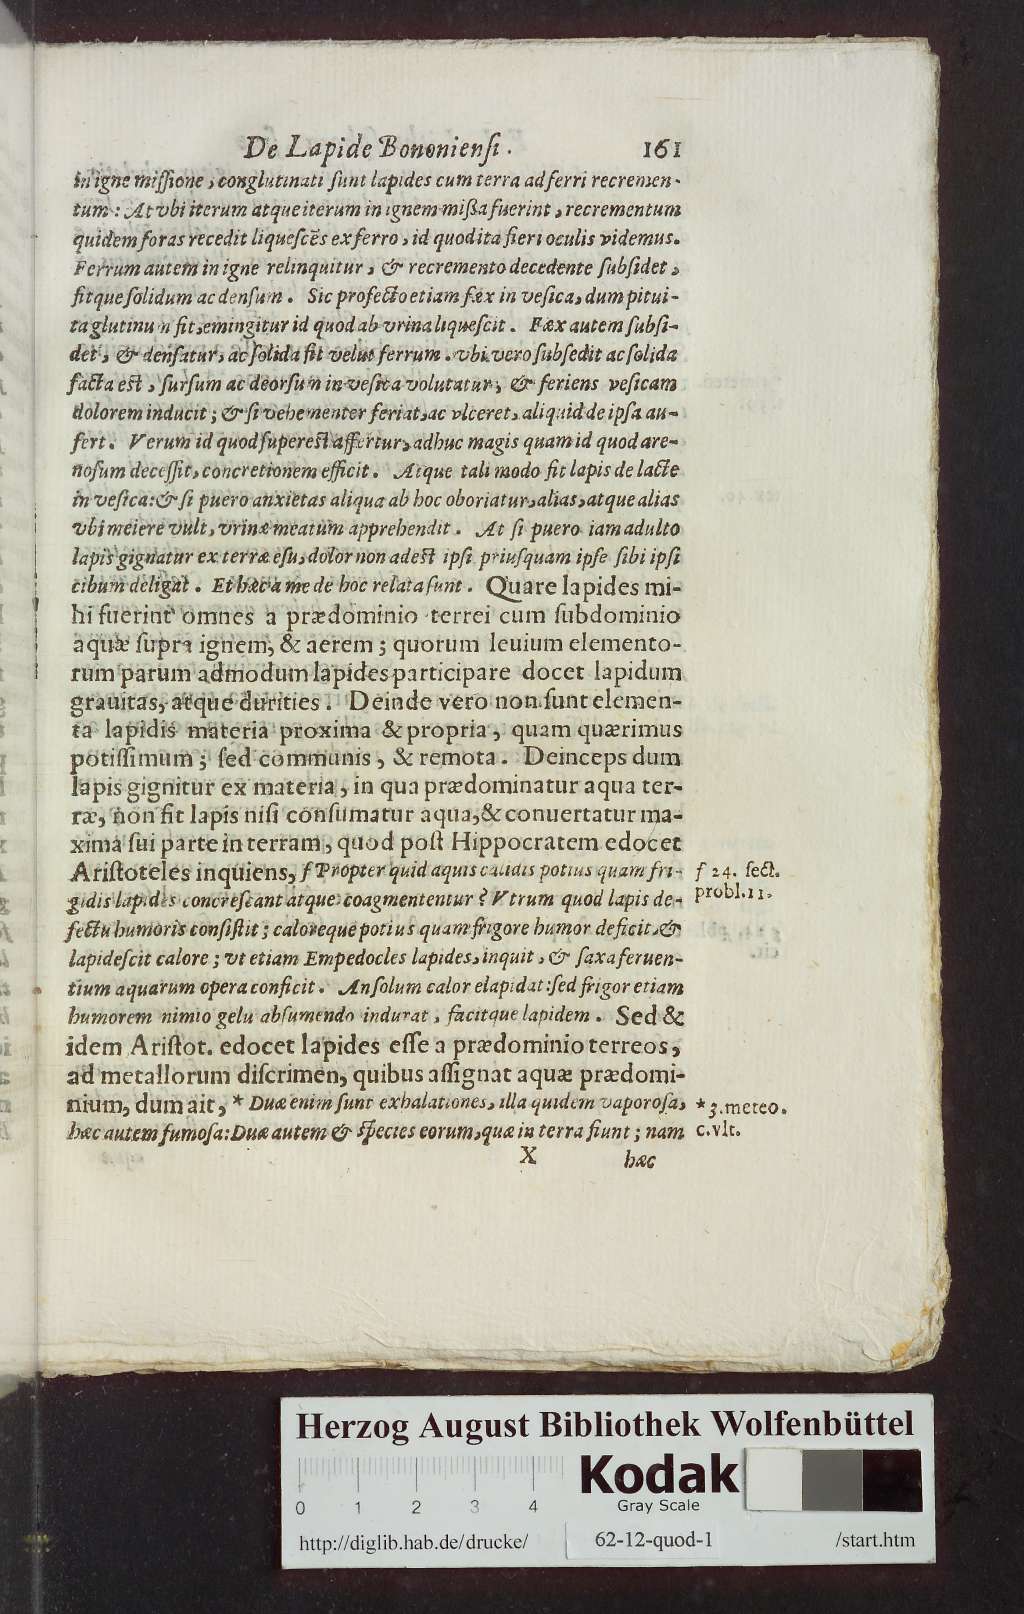 De Lapide Bononiensi. 161
in igne missione, conglutinati sunt lapides cum terra ad ferri recremen-
tum: At vbi iterum atque iterum in ignem missa fuerint, recrementum
quidem foras recedit liquescẽs ex ferro, id quod ita fieri oculis videmus.
Ferrum autem in igne relinquitur, & recremento decedente subsidet,
fitque solidum ac densum. Sic profecto etiam fæx in vesica, dum pitui-
ta glutinum fit, emingitur id quod ab vrina liquescit. Fæx autem subsi-
det, & densatur, ac solida fit velut ferrum. vbi vero subsedit ac solida
facta est, sursum ac deorsum in vesica volutatur, & feriens vesicam
dolorem inducit; & si vehementer feriat, ac vlceret, aliquid de ipsa au-
fert. Verum id quod superest affertur, adhuc magis quam id quod are-
nosum decessit, concretionem efficit. Atque tali modo fit lapis de lacte
in vesica: & si puero anxietas aliqua ab hoc oboriatur, alias, atque alias
vbi meiere vult, vrinæ meatum apprehendit. At si puero iam adulto
lapis gignatur ex terræ esu, dolor non adest ipsi priusquam ipse sibi ipsi
cibum deligat. Et hæc a me de hoc relata sunt. Quare lapides mi-
hi fuerint omnes a prædominio terrei cum subdominio
aquæ supra ignem, & aerem; quorum leuium elemento-
rum parum admodum lapides participare docet lapidum
grauitas, atque durities. Deinde vero non sunt elemen-
ta lapidis materia proxima & propria, quam quærimus
potissimum; sed communis, & remota. Deinceps dum
lapis gignitur ex materia, in qua prædominatur aqua ter-
ræ, non fit lapis nisi consumatur aqua, & conuertatur ma-
xima sui parte in terram, quod post Hippocratem edocet
Aristoteles inquiens, f Propter quid aquis calidis potius quam fri-
gidis lapides concrescant atque coagmententur? Vtrum quod lapis de-
fectu humoris consistit; caloreque potius quam frigore humor deficit, &
lapidescit calore; vt etiam Empedocles lapides, inquit, & saxa feruen-
tium aquarum opera conficit. An solum calor elapidat: sed frigor etiam
humorem nimio gelu absumendo indurat, facitque lapidem. Sed &
idem Aristot. edocet lapides esse a prædominio terreos,
ad metallorum discrimen, quibus assignat aquæ prædomi-
nium, dum ait, * Duæ enim sunt exhalationes, illa quidem vaporosa,
hæc autem fumosa: Duæ autem & species eorum, quæ in terra fiunt; nam
X hæc
f 24. sect.
probl. 11.
* 3. meteo.
c. vlt.
Herzog August Bibliothek Wolfenbüttel
0 1 2 3 4
Kodak
Gray Scale
http://diglib.hab.de/drucke/ 62-12-quod-1 /start.htm